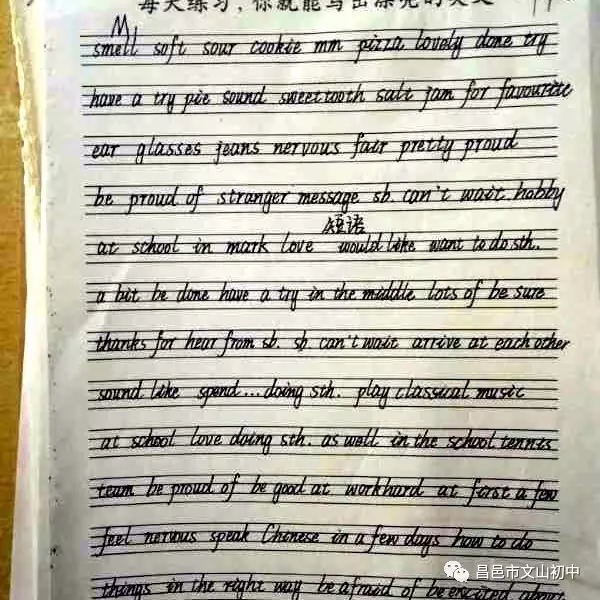 每天练习,你就能写出漂亮的英文
M1
smell soft sour cookie mm pizza lovely done try
have a try pie sound sweet tooth salt jam for favourite
ear glasses jeans nervous fair pretty proud
be proud of stranger message sb. can't wait hobby
短语
at school in mark love would like want to do sth.
a bit be done have a try in the middle lots of be sure
thanks for hear from sb. sb. can't wait arrive at each other
sound like spend...doing sth. play classical music
at school love doing sth. as well in the school tennis
team be proud of be good at work hard at first a few
feel nervous speak Chinese in a few days how to do
things in the right way be afraid of be excited about
昌邑市文山初中